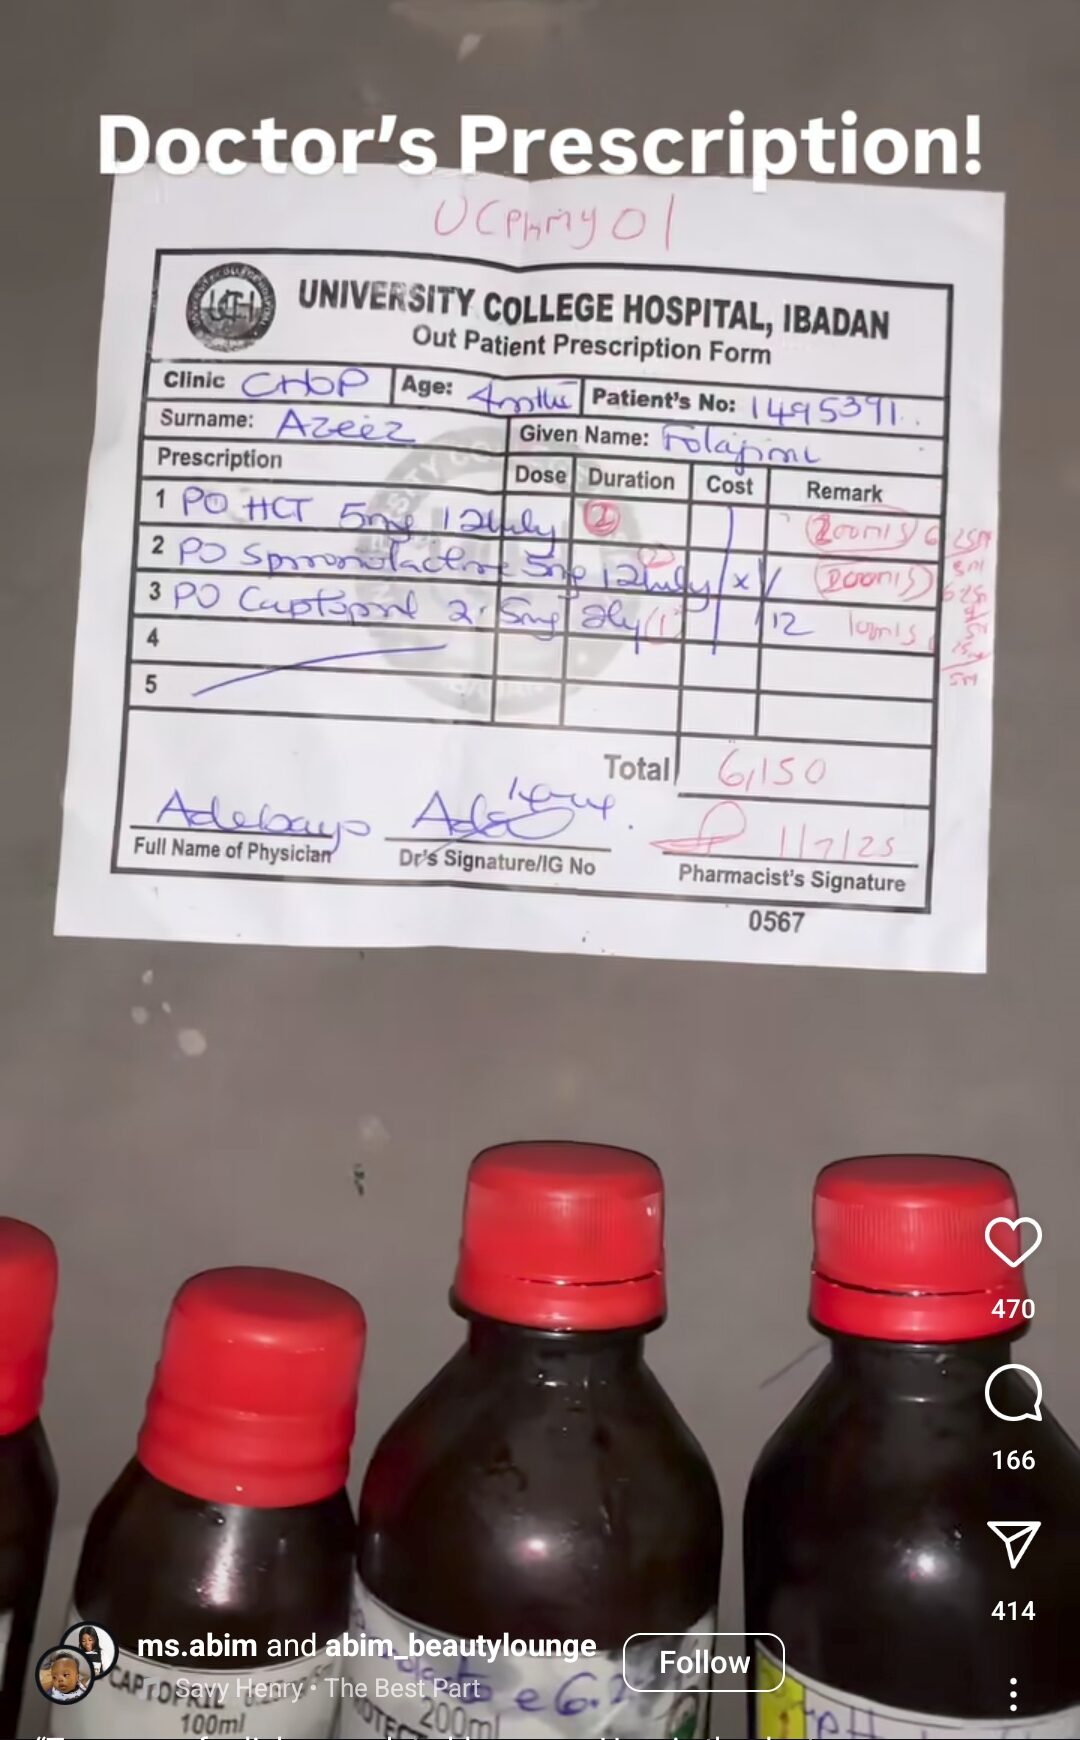 Doctor's Prescription!
UCPhmy01
UNIVERSITY COLLEGE HOSPITAL, IBADAN
Out Patient Prescription Form
Clinic CHOP Age: 4mths Patient's No: 1495391
Surname: Azeez Given Name: Folajimi
Prescription Dose Duration Cost Remark
1 PO HCT 5mg 12hrly 2 200mls 6.25m
2 PO Spironolactone 5mg 12hrly 2 x 200mls
3 PO Captopril 2.5mg 8hly (1) 12 10mls
4
5
Total 6,150
Adebayo
1/7/25
Full Name of Physician Dr's Signature/IG No Pharmacist's Signature
0567
470
166
414
ms.abim and abim_beautylounge Follow
Savy Henry • The Best Part
CAPTOPRIL
100ml
e 6.2
200ml